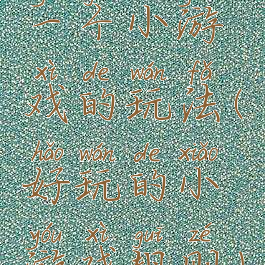 小游
xì de wán fǎ
戏的玩法(
hǎo wán de xiǎo
好玩的小
yóu xì guī zé
游戏规则)